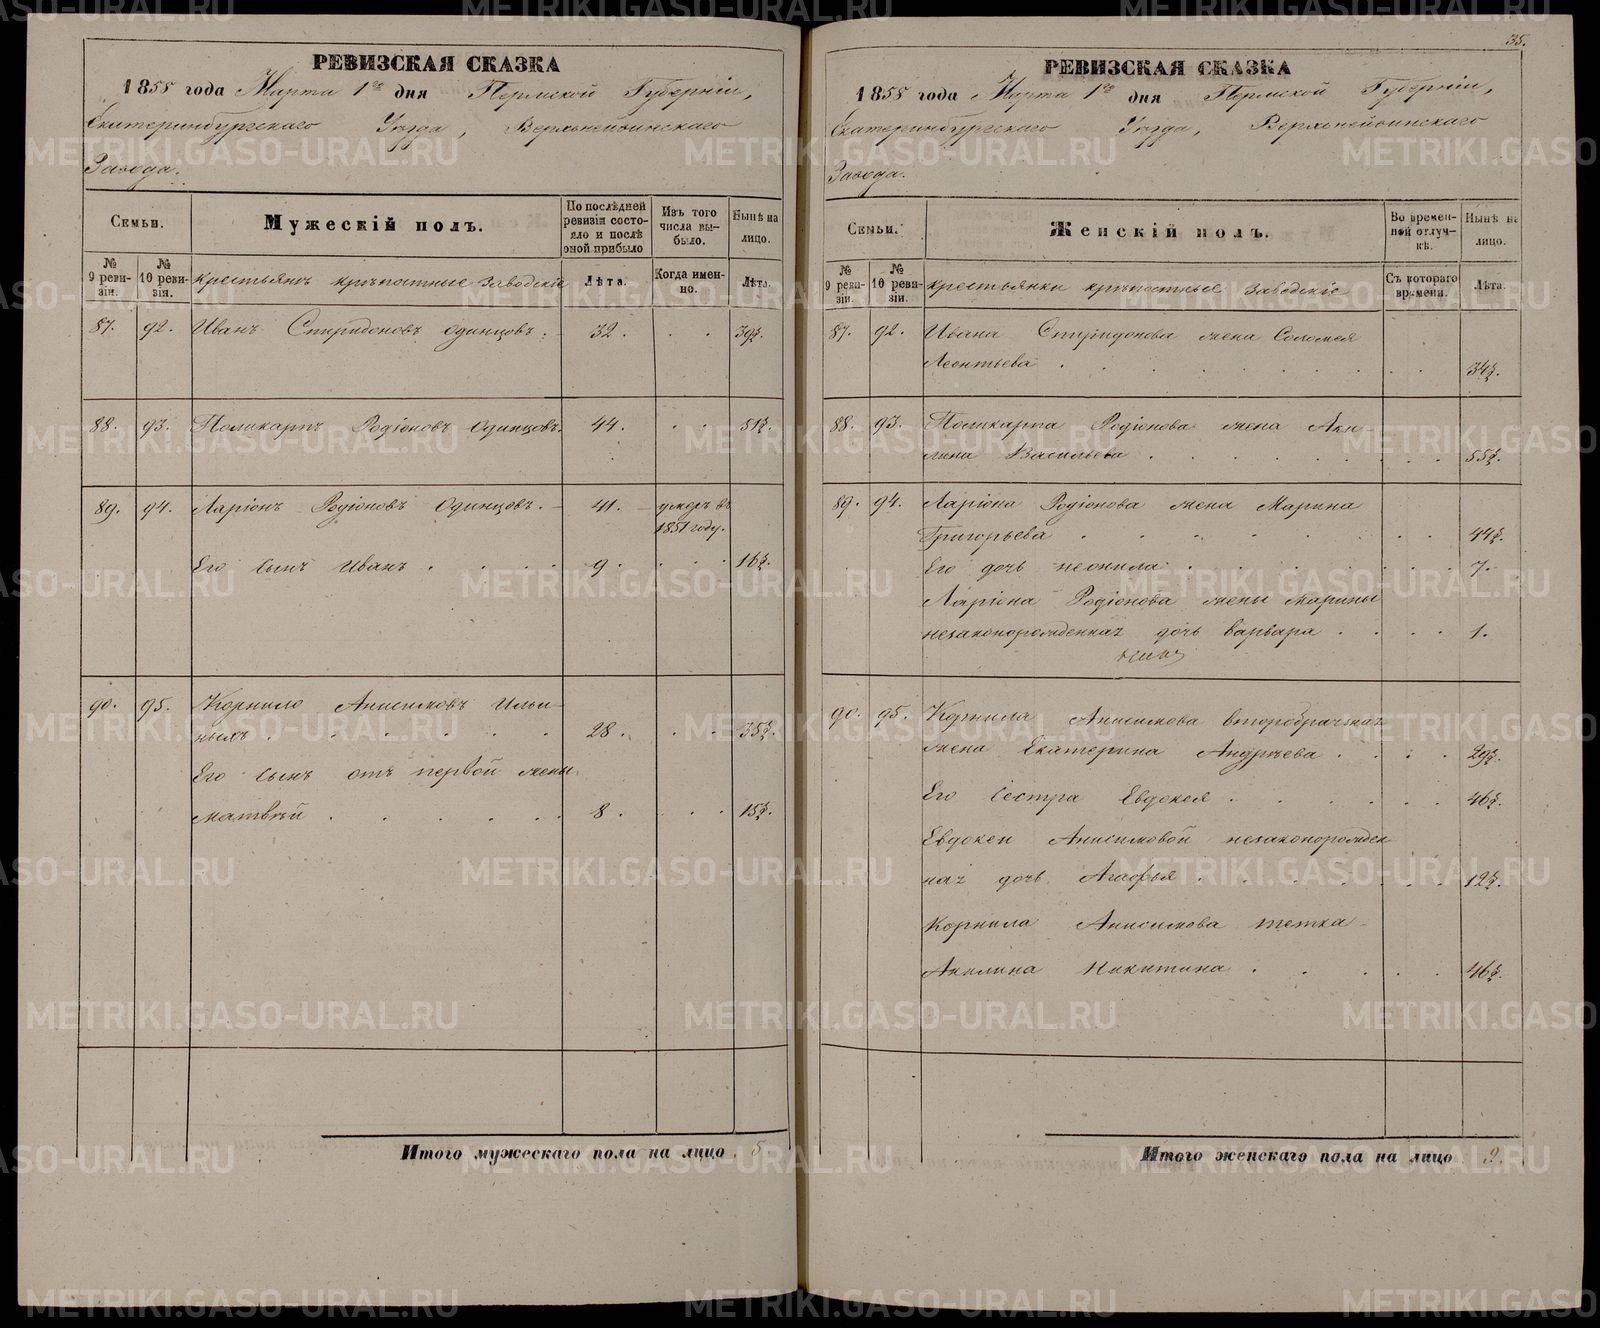 РЕВИЗСКАЯ СКАЗКА
1858 года Марта 1го дня Пермской Губерніи,
Екатеринбургскаго Уѣзда, Верхънейвинскаго
Завода.
Семьи.
Мужескій полъ.
По послѣдней ревизіи состояло и послѣ оной прибыло
Изъ того числа выбыло.
Нынѣ на лицо.
№ 9 ревизіи.
№ 10 ревизія.
Крестьянъ крѣпостные Заводскіе
Лѣта.
Когда именно.
Лѣта.
87. 92. Иванъ Спиридоновъ Одинцовъ. 32. . . 39½.
88. 93. Поликарпъ Родіоновъ Одинцовъ. 44. . . 51½.
89. 94. Ларіонъ Родіоновъ Одинцовъ. 41. умеръ въ
1851 году.
Его сынъ Иванъ . . . . 9. . . . 16½.
90. 95. Корнило Анисимовъ Ильи-
ныхъ . . . . . . 28. . . 35½.
Его сынъ отъ первой жены
Матвѣй . . . . . . 8. . . 15½.
Итого мужескаго пола на лицо 5
35.
РЕВИЗСКАЯ СКАЗКА
1858 года Марта 1го дня Пермской Губерніи,
Екатеринбургскаго Уѣзда, Верхънейвинскаго
Завода.
Семьи.
Женскій полъ.
Во временной отлучкѣ.
Нынѣ на лицо.
№ 9 ревизіи.
№ 10 ревизіи.
Крестьянки крѣпостные Заводскіе
Съ котораго времени.
Лѣта.
87. 92. Ивана Спиридонова жена Соломея
Леонтьева . . . . . . . . 34½.
88. 93. Поликарпа Родіонова жена Аки-
лина Васильева . . . . . . . 55½.
89. 94. Ларіона Родіонова жена Марина
Григорьева . . . . . . . 44½.
Его дочь Неонила . . . . . . 7.
Ларіона Родіонова жены Марины
незаконорожденная дочь Варвара . . . . 1.
90. 95. Корнила Анисимова второбрачная
жена Екатерина Андрѣева . . . . 29½.
Его сестра Евдокея . . . . . . 46½.
Евдокеи Анисимовой незаконорожден
ная дочь Агафья . . . . . . . 12½.
Корнила Анисимова тетка
Акилина Никитина . . . . . 46½.
Итого женскаго пола на лицо 9.
METRIKI.GASO-URAL.RU